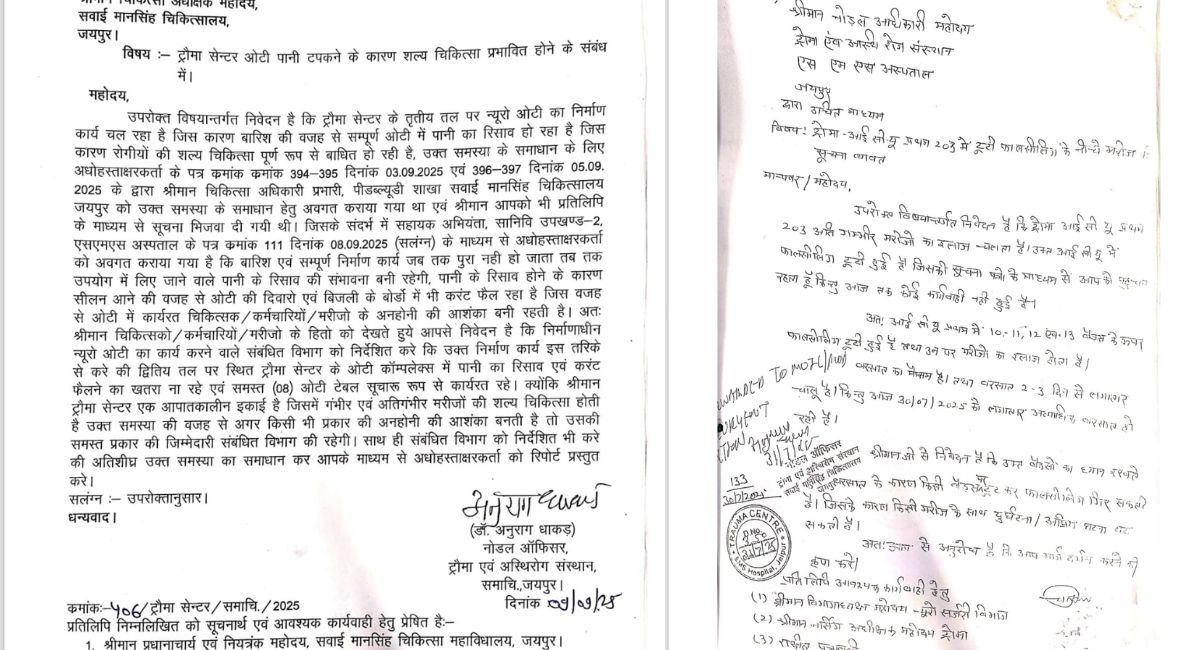 श्रीमान चिकित्सा अधीक्षक महोदय,
सवाई मानसिंह चिकित्सालय,
जयपुर।
विषय :– ट्रौमा सेन्टर ओटी पानी टपकने के कारण शल्य चिकित्सा प्रभावित होने के संबंध
में।
महोदय,
उपरोक्त विषयान्तर्गत निवेदन है कि ट्रौमा सेन्टर के तृतीय तल पर न्यूरो ओटी का निर्माण
कार्य चल रहा है जिस कारण बारिश की वजह से सम्पूर्ण ओटी में पानी का रिसाव हो रहा है जिस
कारण रोगीयों की शल्य चिकित्सा पूर्ण रूप से बाधित हो रही है, उक्त समस्या के समाधान के लिए
अधोहस्ताक्षरकर्ता के पत्र क्रमांक क्रमांक 394-395 दिनांक 03.09.2025 एवं 396-397 दिनांक 05.09.
2025 के द्वारा श्रीमान चिकित्सा अधिकारी प्रभारी, पीडब्ल्यूडी शाखा सवाई मानसिंह चिकित्सालय
जयपुर को उक्त समस्या के समाधान हेतु अवगत कराया गया था एवं श्रीमान आपको भी प्रतिलिपि
के माध्यम से सूचना भिजवा दी गयी थी। जिसके संदर्भ में सहायक अभियंता, सानिवि उपखण्ड–2,
एसएमएस अस्पताल के पत्र क्रमांक 111 दिनांक 08.09.2025 (सलंग्न) के माध्यम से अधोहस्ताक्षरकर्ता
को अवगत कराया गया है कि बारिश एवं सम्पूर्ण निर्माण कार्य जब तक पुरा नही हो जाता तब तक
उपयोग में लिए जाने वाले पानी के रिसाव की संभावना बनी रहेगी, पानी के रिसाव होने के कारण
सीलन आने की वजह से ओटी की दिवारो एवं बिजली के बोर्डो में भी करंट फैल रहा है जिस वजह
से ओटी में कार्यरत चिकित्सक/कर्मचारियों/मरीजो के अनहोनी की आशंका बनी रहती है। अतः
श्रीमान चिकित्सको/कर्मचारीयों/मरीजो के हितो को देखते हुये आपसे निवेदन है कि निर्माणाधीन
न्यूरो ओटी का कार्य करने वाले संबंधित विभाग को निर्देशित करे कि उक्त निर्माण कार्य इस तरिके
से करे की द्वितिय तल पर स्थित ट्रौमा सेन्टर के ओटी कॉम्पलेक्स में पानी का रिसाव एवं करंट
फैलने का खतरा ना रहे एवं समस्त (08) ओटी टेबल सूचारू रूप से कार्यरत रहे। क्योंकि श्रीमान
ट्रौमा सेन्टर एक आपातकालीन इकाई है जिसमें गंभीर एवं अतिगंभीर मरीजों की शल्य चिकित्सा होती
है उक्त समस्या की वजह से अगर किसी भी प्रकार की अनहोनी की आशंका बनती है तो उसकी
समस्त प्रकार की जिम्मेदारी संबंधित विभाग की रहेगी। साथ ही संबंधित विभाग को निर्देशित भी करे
की अतिशीघ्र उक्त समस्या का समाधान कर आपके माध्यम से अधोहस्ताक्षरकर्ता को रिपोर्ट प्रस्तुत
करे।
सलंग्न :– उपरोक्तानुसार।
धन्यवाद।
(डॉ. अनुराग धाकड़)
नोडल ऑफिसर,
ट्रौमा एवं अस्थिरोग संस्थान,
समाचि.,जयपुर।
दिनांक 09/09/25
क्रमांकः-406/ट्रौमा सेन्टर/समाचि./2025
प्रतिलिपि निम्नलिखित को सूचनार्थ एवं आवश्यक कार्यवाही हेतु प्रेषित हैः–
1. श्रीमान प्रधानाचार्य एवं नियत्रंक महोदय, सवाई मानसिंह चिकित्सा महाविधालय, जयपुर।
श्रीमान नोडल अधिकारी महोदय
ट्रोमा एंव अस्थि रोग संस्थान
एस एम एस अस्पताल
जयपुर
द्वारा उचित माध्यम
विषय: ट्रोमा-आई सी यू प्रथम 203 में टूटी फालसीलिंग के नीचे मरीज
सूचना बाबत
मान्यवर/महोदय,
उपरोक्त विषयान्तर्गत निवेदन है कि ट्रोमा आई सी यू प्रथम
203 अति गम्भीर मरीजो का इलाज चलता है। उक्त आई सी यू में
फालसीलिंग टूटी हुई है जिसकी सूचना पत्रो के माध्यम से आप को
रहता हूँ किन्तु आज तक कोई कार्यवाही नही हुई है।
अतः आई सी यू प्रथम में 10-11, 12 एंव-13 बैडस के ऊपर
फालसीलिंग टूटी हुई है तथा उन पर मरीजो का इलाज होता है।
बरसात का मौसम है। तथा बरसात 2-3 दिन से लगातार
चालु है। किन्तु आज 30/07/2025 को लगातार अत्यधिक बरसात हो
रही है।
31/7/25
नोडल ऑफिसर
ट्रौमा एवं अस्थिरोग संस्थान
133
30/7/2025
श्रीमानजी से निवेदन है कि उक्त बैडसो का ध्यान रखते
बरसात के कारण किसी बैडस पर टूट कर फालसीलिंग गिर सकती
है। जिसके कारण किसी मरीज के साथ दुर्घटना/अप्रिय घटना घट
सकती है।
TRAUMA CENTRE
31/7/25
SMS Hospital, Jaipur
अतः आप से अनुरोध है कि आप मार्ग दर्शन करने की
कृपा करे।
प्रति लिपि आवश्यक कार्यवाही हेतु
(1) श्रीमान विभागाध्यक्ष महोदय - न्यूरो सर्जरी विभाग
(2) श्रीमान नर्सिंग अधीक्षक महोदय ट्रोमा
(3)